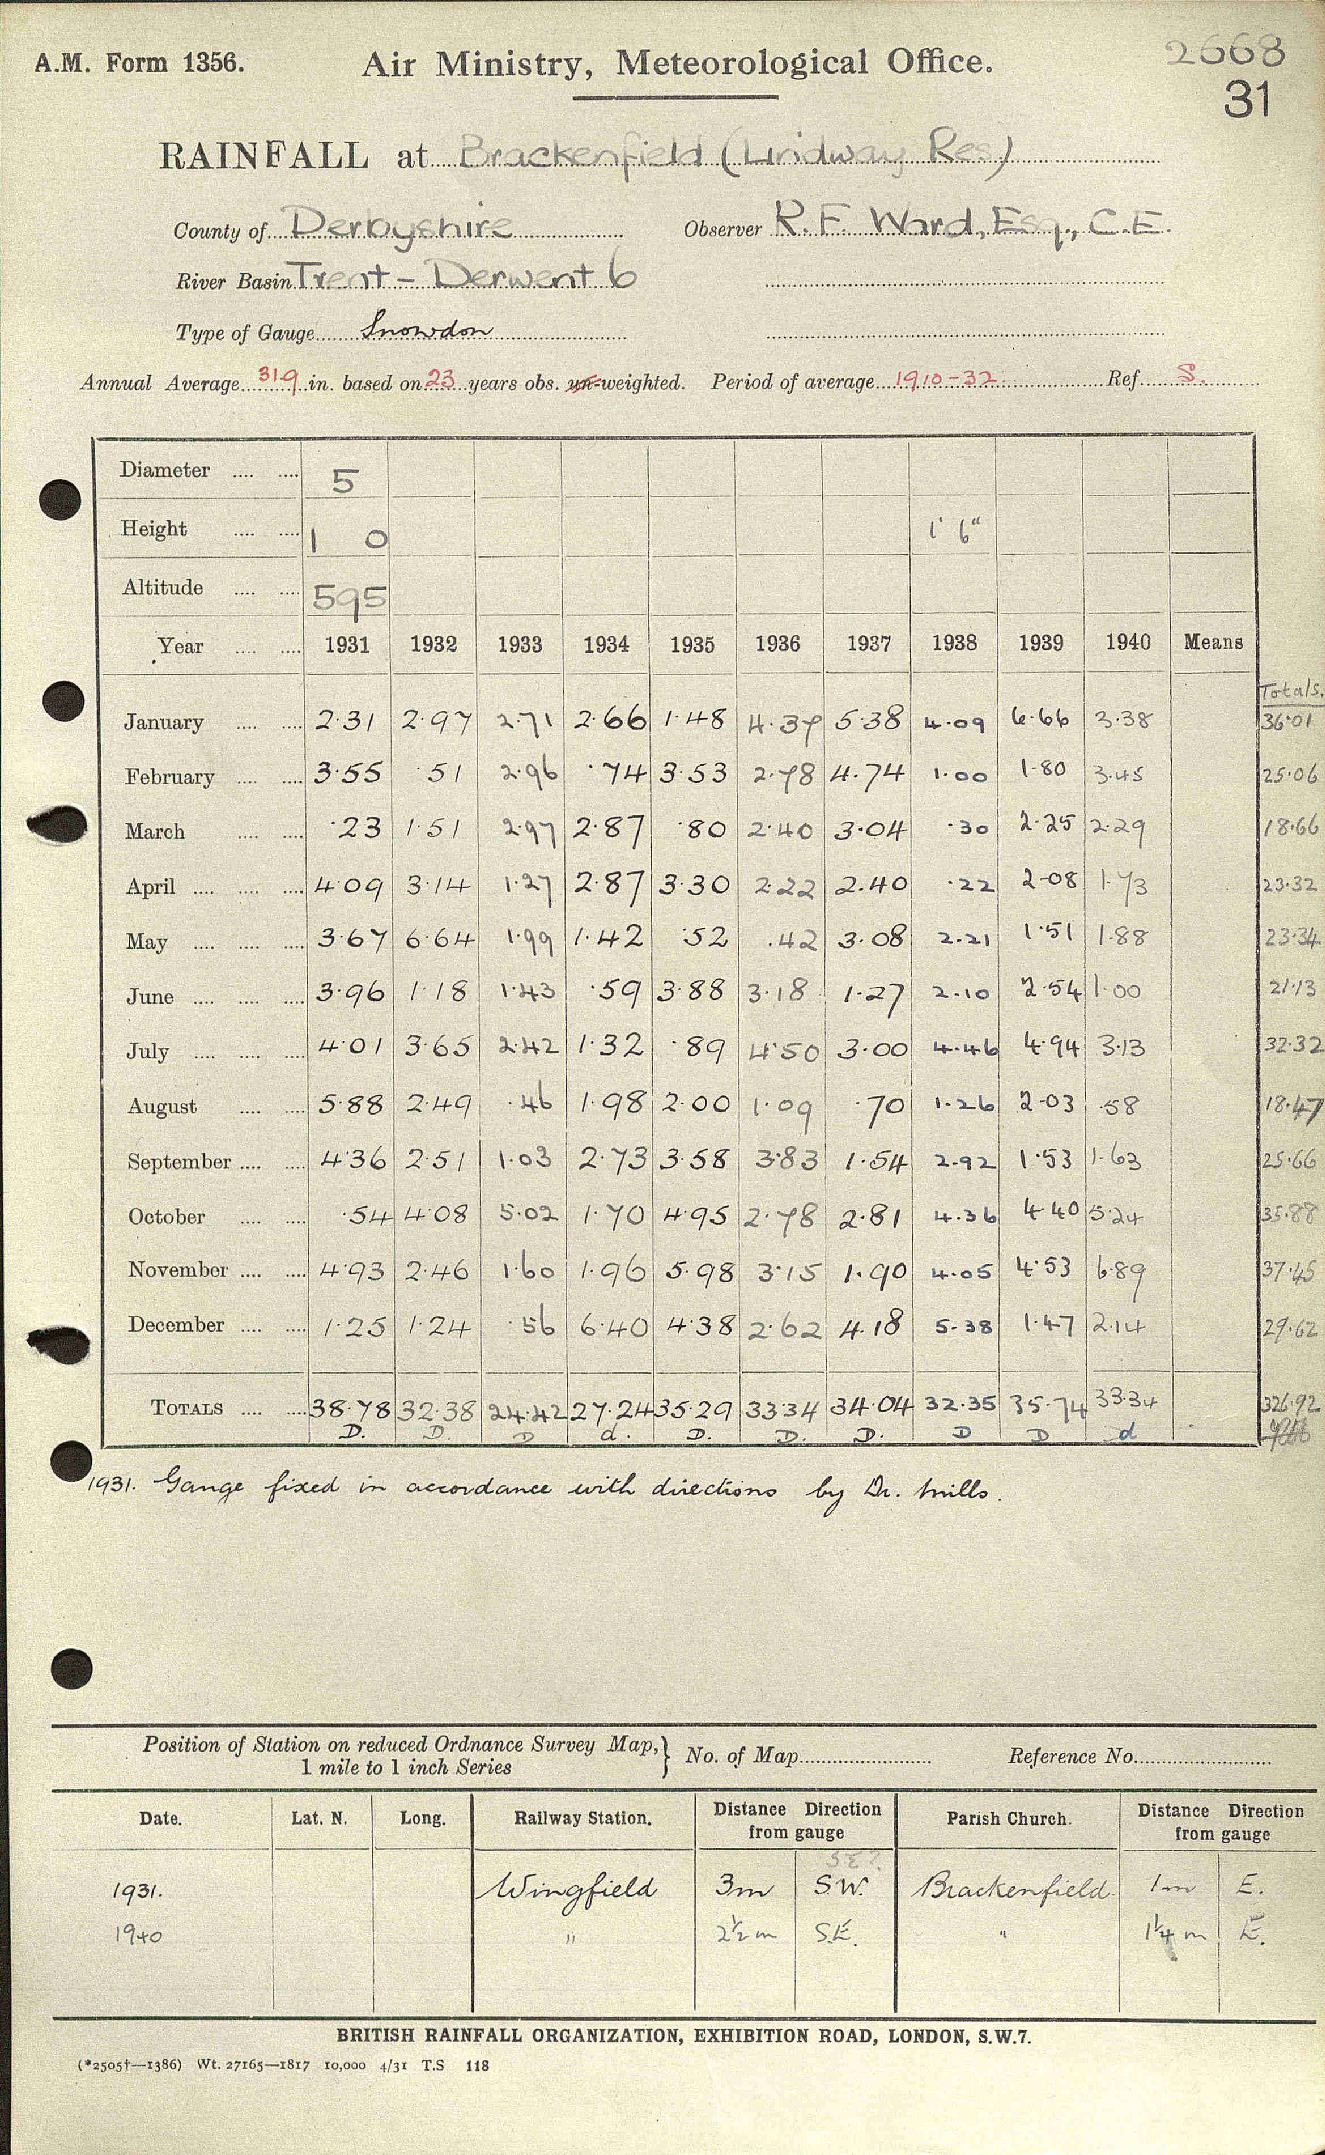 A.M. Form 1356. Air Ministry, Meteorological Office. 2668
31
RAINFALL at Brackenfield (Lindway Res)
County of Derbyshire Observer R.F. Ward, Esq., C.E.
River Basin Trent - Derwent 6
Type of Gauge Snowdon
Annual Average 31.9 in. based on 23 years obs. un-weighted. Period of average 1910-32 Ref S.
Diameter 5
Height 1 0 1' 6"
Altitude 595
Year 1931 1932 1933 1934 1935 1936 1937 1938 1939 1940 Means
Totals.
January 2.31 2.97 2.71 2.66 1.48 4.37 5.38 4.09 6.66 3.38 36.01
February 3.55 .51 2.96 .74 3.53 2.78 4.74 1.00 1.80 3.45 25.06
March .23 1.51 2.97 2.87 .80 2.40 3.04 .30 2.25 2.29 18.66
April 4.09 3.14 1.27 2.87 3.30 2.22 2.40 .22 2.08 1.73 23.32
May 3.67 6.64 1.99 1.42 .52 .42 3.08 2.21 1.51 1.88 23.34
June 3.96 1.18 1.43 .59 3.88 3.18 1.27 2.10 2.54 1.00 21.13
July 4.01 3.65 2.42 1.32 .89 4.50 3.00 4.46 4.94 3.13 32.32
August 5.88 2.49 .46 1.98 2.00 1.09 .70 1.26 2.03 .58 18.47
September 4.36 2.51 1.03 2.73 3.58 3.83 1.54 2.92 1.53 1.63 25.66
October .54 4.08 5.02 1.70 4.95 2.78 2.81 4.36 4.40 5.24 35.88
November 4.93 2.46 1.60 1.96 5.98 3.15 1.90 4.05 4.53 6.89 37.45
December 1.25 1.24 .56 6.40 4.38 2.62 4.18 5.38 1.47 2.14 29.62
TOTALS 38.78 32.38 24.42 27.24 35.29 33.34 34.04 32.35 35.74 33.34 326.92
D. D. D d. D. D. D. D D d
1931. Gauge fixed in accordance with directions by Dr. Mills.
Position of Station on reduced Ordnance Survey Map, } No. of Map Reference No.
1 mile to 1 inch Series
Date. Lat. N. Long. Railway Station. Distance Direction from gauge Parish Church. Distance Direction from gauge
S E ?
1931. Wingfield 3m SW. Brackenfield 1m E.
1940 " 2½ m S.E. " 1¼ m E.
BRITISH RAINFALL ORGANIZATION, EXHIBITION ROAD, LONDON, S.W.7.
(*2505†—1386) Wt. 27165—1817 10,000 4/31 T.S 118